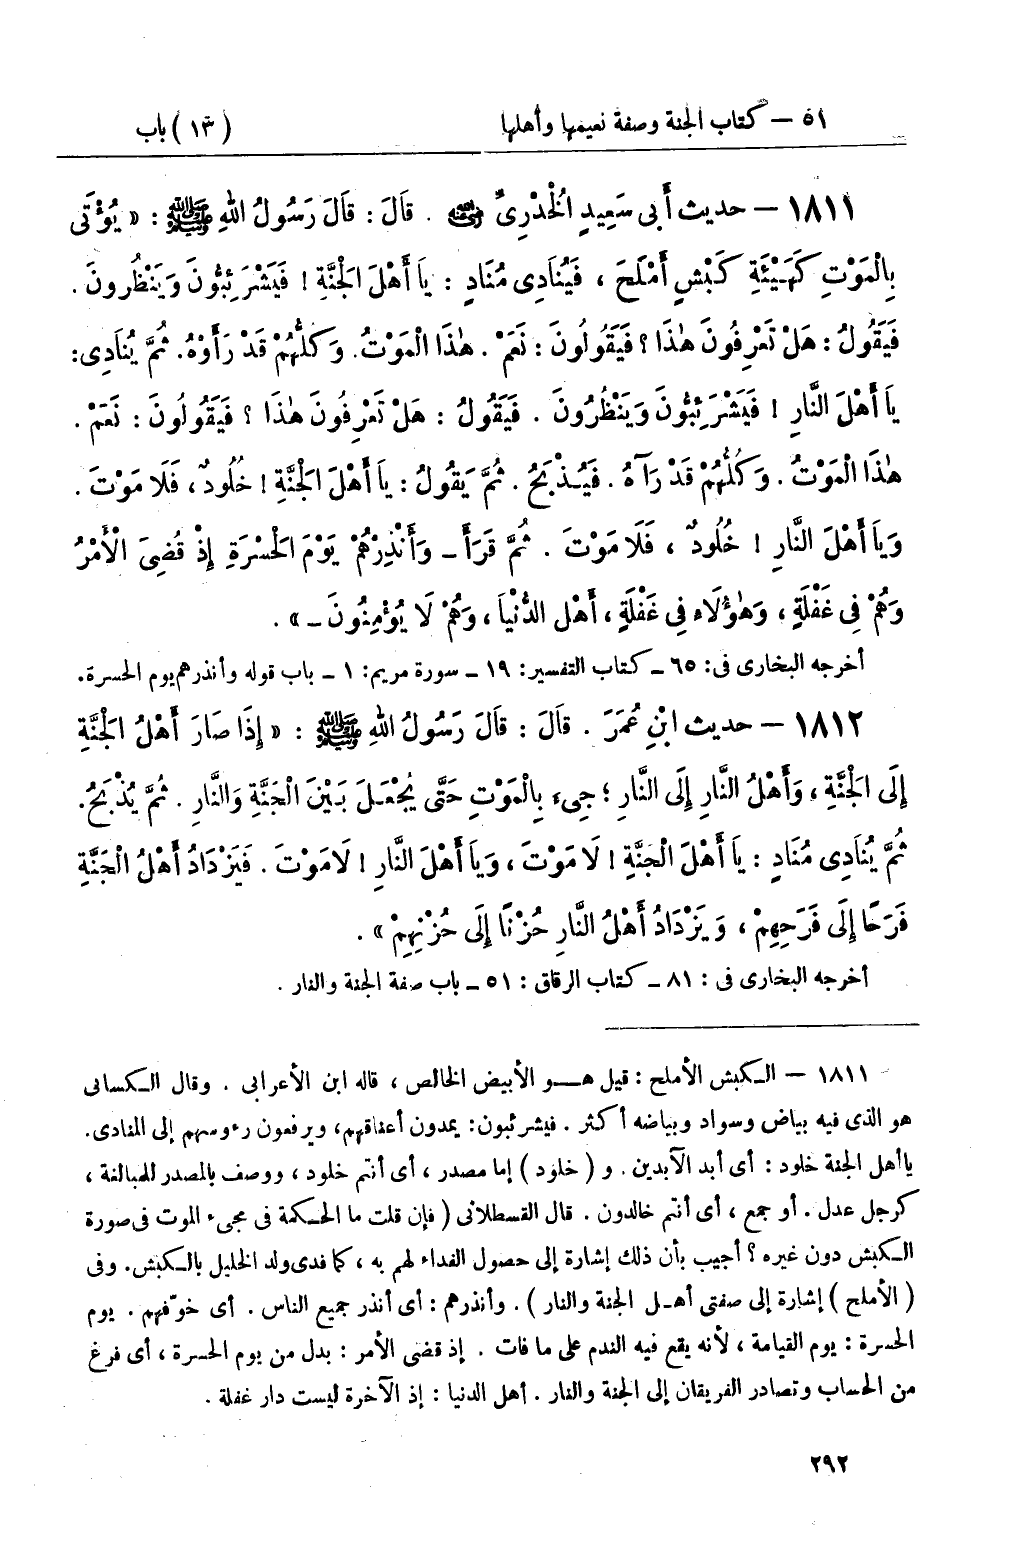 ٥١ – كتاب الجنة وصفة نعيمها وأهلها (١٣) باب
١٨١١ – حديث أَبِي سَعِيدٍ الْخُدْرِيِّ رضي الله عنه . قَالَ : قَالَ رَسُولُ اللهِ ﷺ : « يُؤْتَى
بِالْمَوْتِ كَهَيْئَةِ كَبْشٍ أَمْلَحَ ، فَيُنَادِى مُنَادٍ : يَا أَهْلَ الْجَنَّةِ ! فَيَشْرَئِبُّونَ وَيَنْظُرُونَ .
فَيَقُولُ : هَلْ تَعْرِفُونَ هٰذَا ؟ فَيَقُولُونَ : نَعَمْ . هٰذَا الْمَوْتُ . وَكُلُّهُمْ قَدْ رَأَوْهُ . ثُمَّ يُنَادِى :
يَا أَهْلَ النَّارِ ! فَيَشْرَئِبُّونَ وَيَنْظُرُونَ . فَيَقُولُ : هَلْ تَعْرِفُونَ هٰذَا ؟ فَيَقُولُونَ : نَعَمْ .
هٰذَا الْمَوْتُ . وَكُلُّهُمْ قَدْ رَآهُ . فَيُذْبَحُ . ثُمَّ يَقُولُ : يَا أَهْلَ الْجَنَّةِ ! خُلُودٌ ، فَلَا مَوْتَ .
وَيَا أَهْلَ النَّارِ ! خُلُودٌ ، فَلَا مَوْتَ . ثُمَّ قَرَأَ – وَأَنْذِرْهُمْ يَوْمَ الْحَسْرَةِ إِذْ قُضِىَ الْأَمْرُ
وَهُمْ فِى غَفْلَةٍ ، وَهٰؤُلَاءِ فِى غَفْلَةٍ ، أَهْل الدُّنْيَا ، وَهُمْ لَا يُؤْمِنُونَ – » .
أخرجه البخارى فى : ٦٥ – كتاب التفسير : ١٩ – سورة مريم : ١ – باب قوله وأنذرهم يوم الحسرة .
١٨١٢ – حديث ابْنِ عُمَرَ . قَالَ : قَالَ رَسُولُ اللهِ ﷺ : « إِذَا صَارَ أَهْلُ الْجَنَّةِ
إِلَى الْجَنَّةِ ، وَأَهْلُ النَّارِ إِلَى النَّارِ ؛ جِىءَ بِالْمَوْتِ حَتَّى يُجْعَلَ بَيْنَ الْجَنَّةِ وَالنَّارِ . ثُمَّ يُذْبَحُ .
ثُمَّ يُنَادِى مُنَادٍ : يَا أَهْلَ الْجَنَّةِ ! لَا مَوْتَ ، وَيَا أَهْلَ النَّارِ ! لَا مَوْتَ . فَيَزْدَادُ أَهْلُ الْجَنَّةِ
فَرَحًا إِلَى فَرَحِهِمْ ، وَيَزْدَادُ أَهْلُ النَّارِ حُزْنًا إِلَى حُزْنِهِمْ » .
أخرجه البخارى فى : ٨١ – كتاب الرقاق : ٥١ – باب صفة الجنة والنار .
١٨١١ – الكبش الأملح : قيل هو الأبيض الخالص ، قاله ابن الأعرابى . وقال الكسائى
هو الذى فيه بياض وسواد وبياضه أكثر . فيشرئبون : يمدون أعناقهم ، ويرفعون رءوسهم إلى المنادى .
يا أهل الجنة خلود : أى أبد الآبدين . و ( خلود ) إما مصدر ، أى أنتم خلود ، ووصف بالمصدر للمبالغة ،
كرجل عدل . أو جمع ، أى أنتم خالدون . قال القسطلانى ( فإن قلت ما الحكمة فى مجىء الموت فى صورة
الكبش دون غيره ؟ أجيب بأن ذلك إشارة إلى حصول الفداء لهم به ، كما فدى ولد الخليل بالكبش . وفى
( الأملح ) إشارة إلى صفتى أهل الجنة والنار ) . وأنذرهم : أى أنذر جميع الناس . أى خوّفهم . يوم
الحسرة : يوم القيامة ، لأنه يقع فيه الندم على ما فات . إذ قضى الأمر : بدل من يوم الحسرة ، أى فرغ
من الحساب وتصادر الفريقان إلى الجنة والنار . أهل الدنيا : إذ الآخرة ليست دار غفلة .
٢٩٢